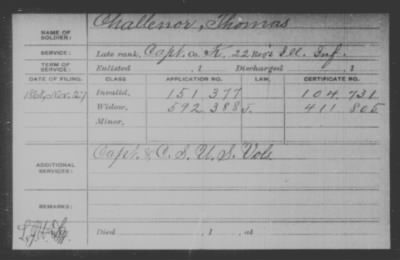 NAME OF SOLDIER: Challenor, Thomas
SERVICE: Late rank, Capt. Co. K, 22 Reg't Ill. Inf.
TERM OF SERVICE: Enlisted , 1 Discharged , 1
DATE OF FILING. CLASS. APPLICATION NO. LAW. CERTIFICATE NO.
Nov. 27 Invalid, 151.377 104.731
Widow, 592.388 411.805
Minor,
ADDITIONAL SERVICES: Capt. & C. S. U. S. Vols.
REMARKS:
Died , 1 , at